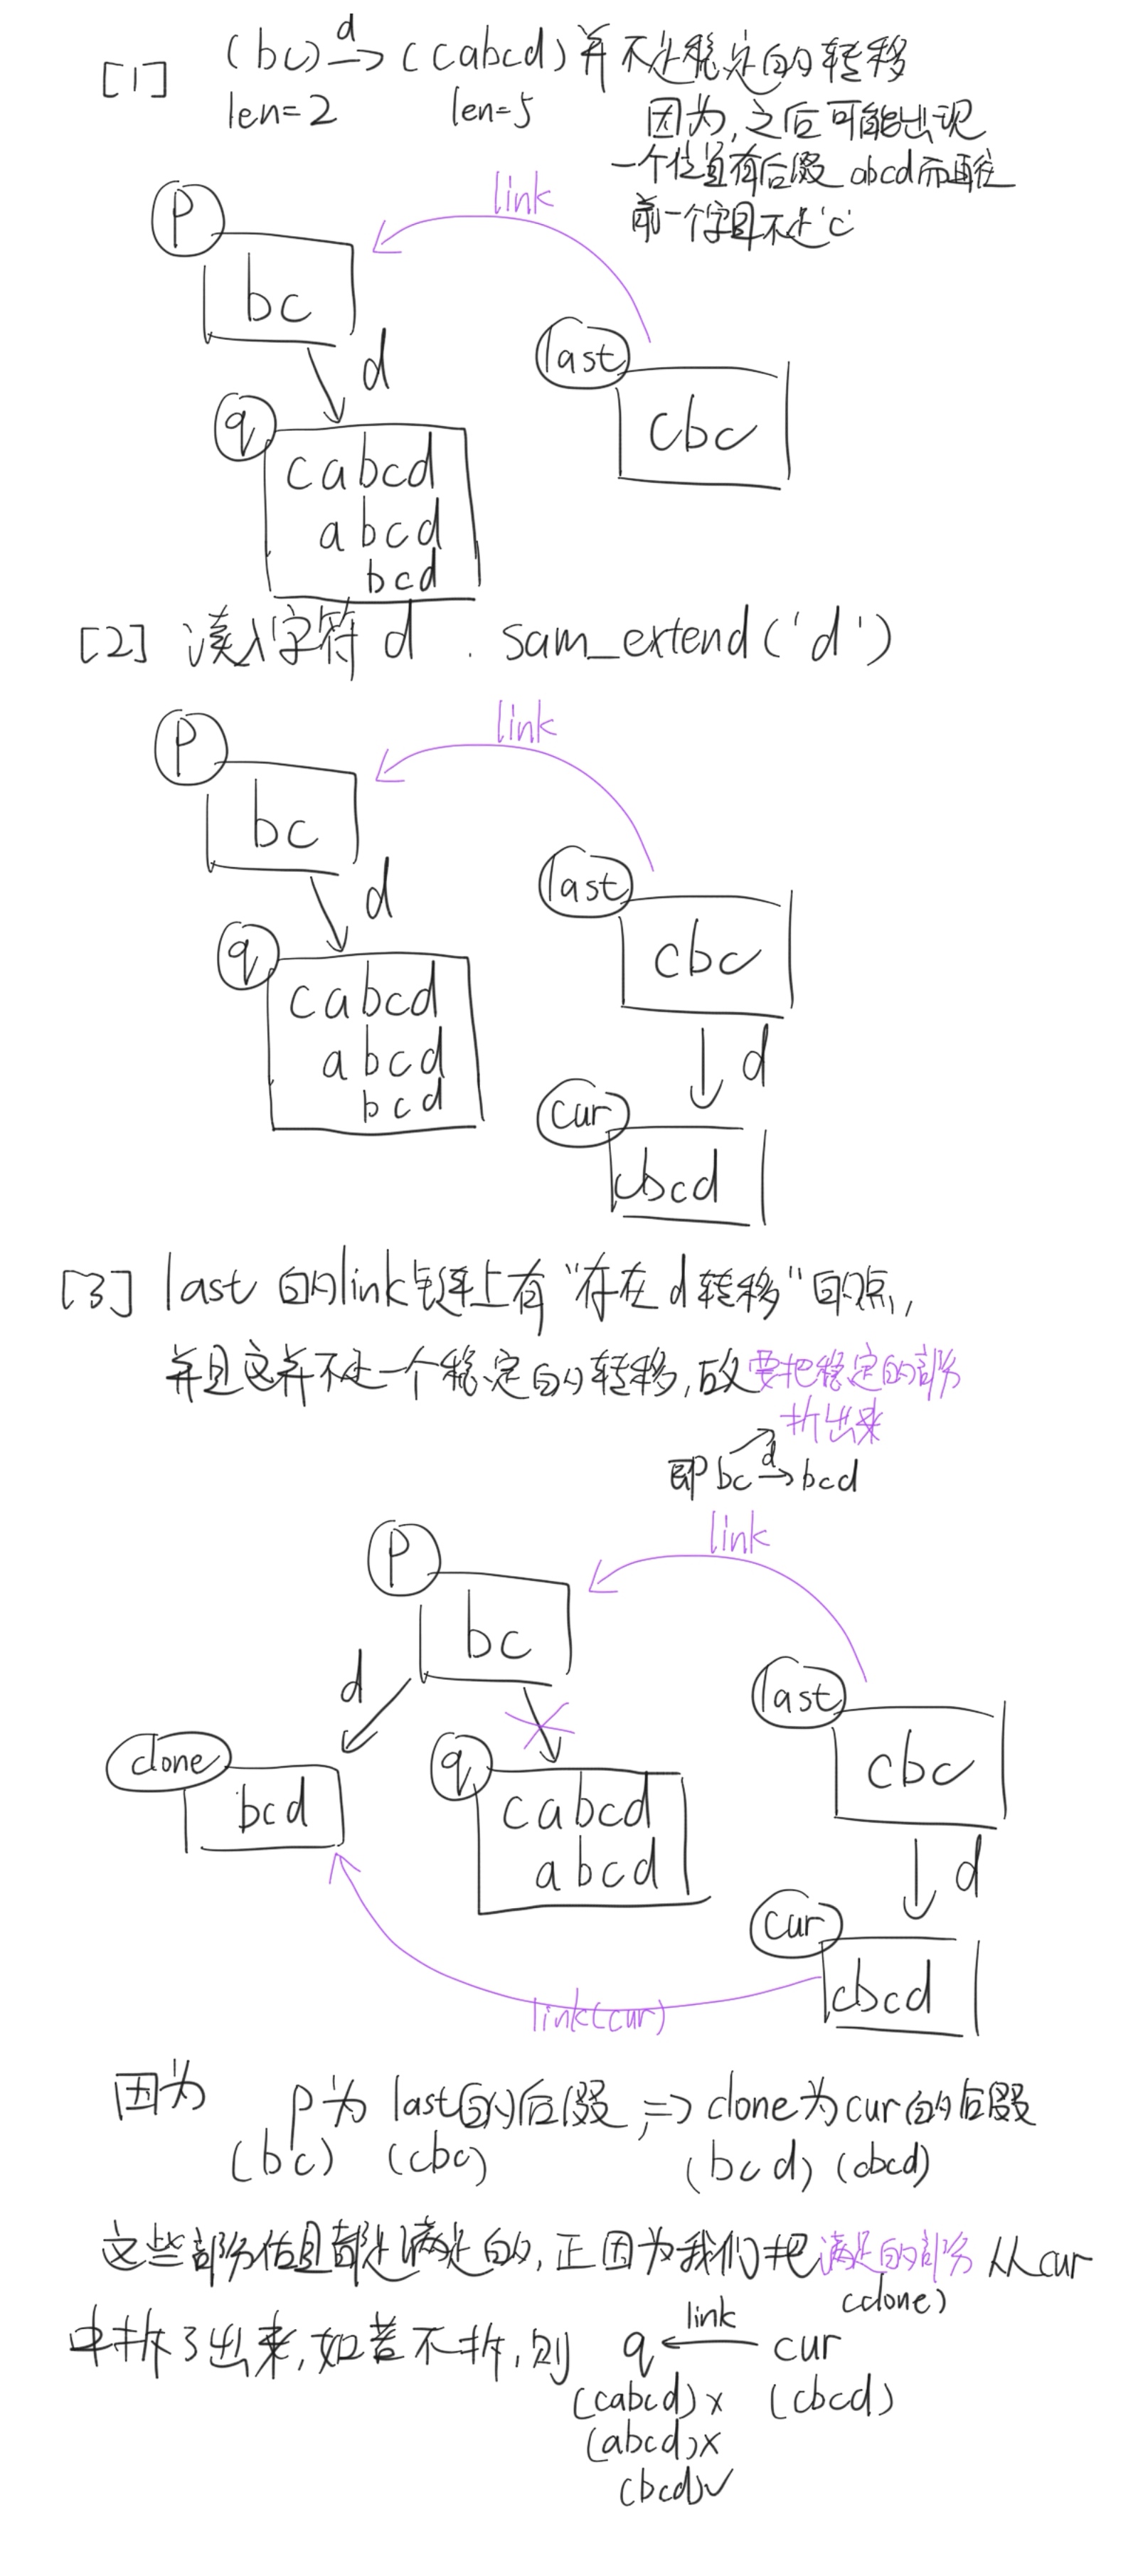 [1] (bc) d→ (cabcd) 并不是稳定的转移
len=2 len=5 因为,之后可能出现
一个位置有后缀 abcd 而再往
前一个字母不是'c'
link
p
bc
d
last
cbc
q
cabcd
abcd
bcd
[2] 凑入字符 d . sam_extend('d')
link
p
bc
d
last
cbc
q
cabcd
abcd
bcd
d
cur
cbcd
[3] last 的link链上有“存在d转移”的点,
并且这并不是一个稳定的转移,故要把稳定的部份
拆出来
即 bc d→ bcd
link
p
bc
d
last
cbc
clone
bcd
q
cabcd
abcd
d
cur
cbcd
link(cur)
因为 p为 last的后缀, => clone为cur的后缀
(bc) (cbc) (bcd) (cbcd)
这些部份估且都是满足的,正因为我们把满足的部份 从cur
(clone)
中拆了出来,如若不拆,则 q ←link cur
(cabcd)× (cbcd)
(abcd)×
(bcd)✓